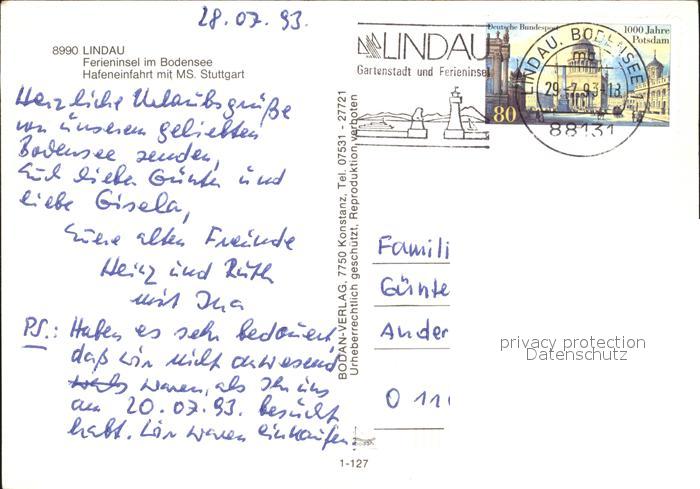 28.07.93.
8990 LINDAU
Ferieninsel im Bodensee
Hafeneinfahrt mit MS. Stuttgart
Herzliche Urlaubsgrüße
von unserem geliebten
Bodensee senden,
Euch lieber Günter und
liebe Gisela,
Euere alten Freunde
Heinz und Ruth
mit Ina
PS.: Haben es sehr bedauert
daß wir nicht anwesend
waren, als Ihr uns
am 20.07.93. besucht
habt. Wir waren einkaufen.
BODAN-VERLAG, 7750 Konstanz, Tel. 07531 - 27721
Urheberrechtlich geschützt, Reproduktion verboten
LINDAU
Gartenstadt und Ferieninsel
Deutsche Bundespost
1000 Jahre
Potsdam
80
LINDAU, BODENSEE
mb
29.-7.93-18
88131
Famili
Günte
Ander
O 11
privacy protection
Datenschutz
1-127